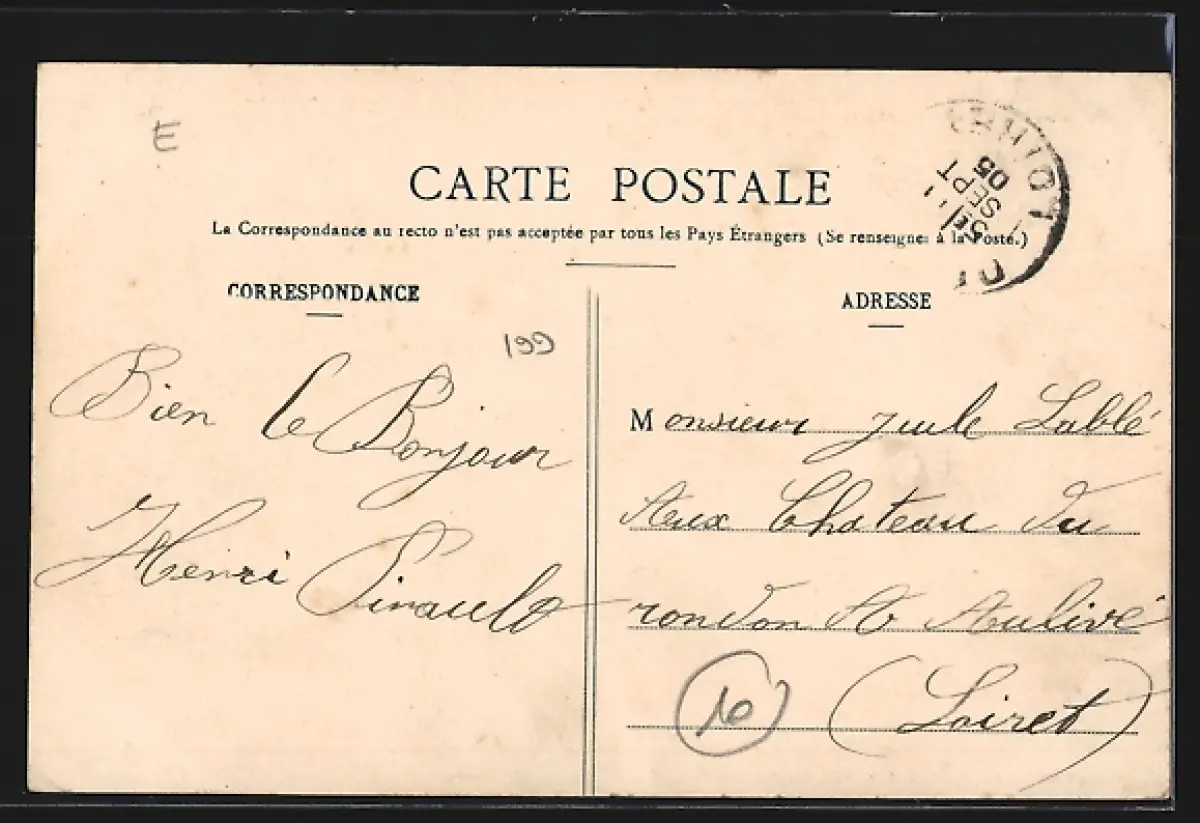 E
CARTE POSTALE
La Correspondance au recto n'est pas acceptée par tous les Pays Étrangers (Se renseigner à la Poste.)
CORRESPONDANCE
ADRESSE
199
Bien le Bonjour
Henri Pinault
Monsieur Jule Lablé
Aux Chateau du
rondon St Aulivé
(Loiret)
10
SEPT
05